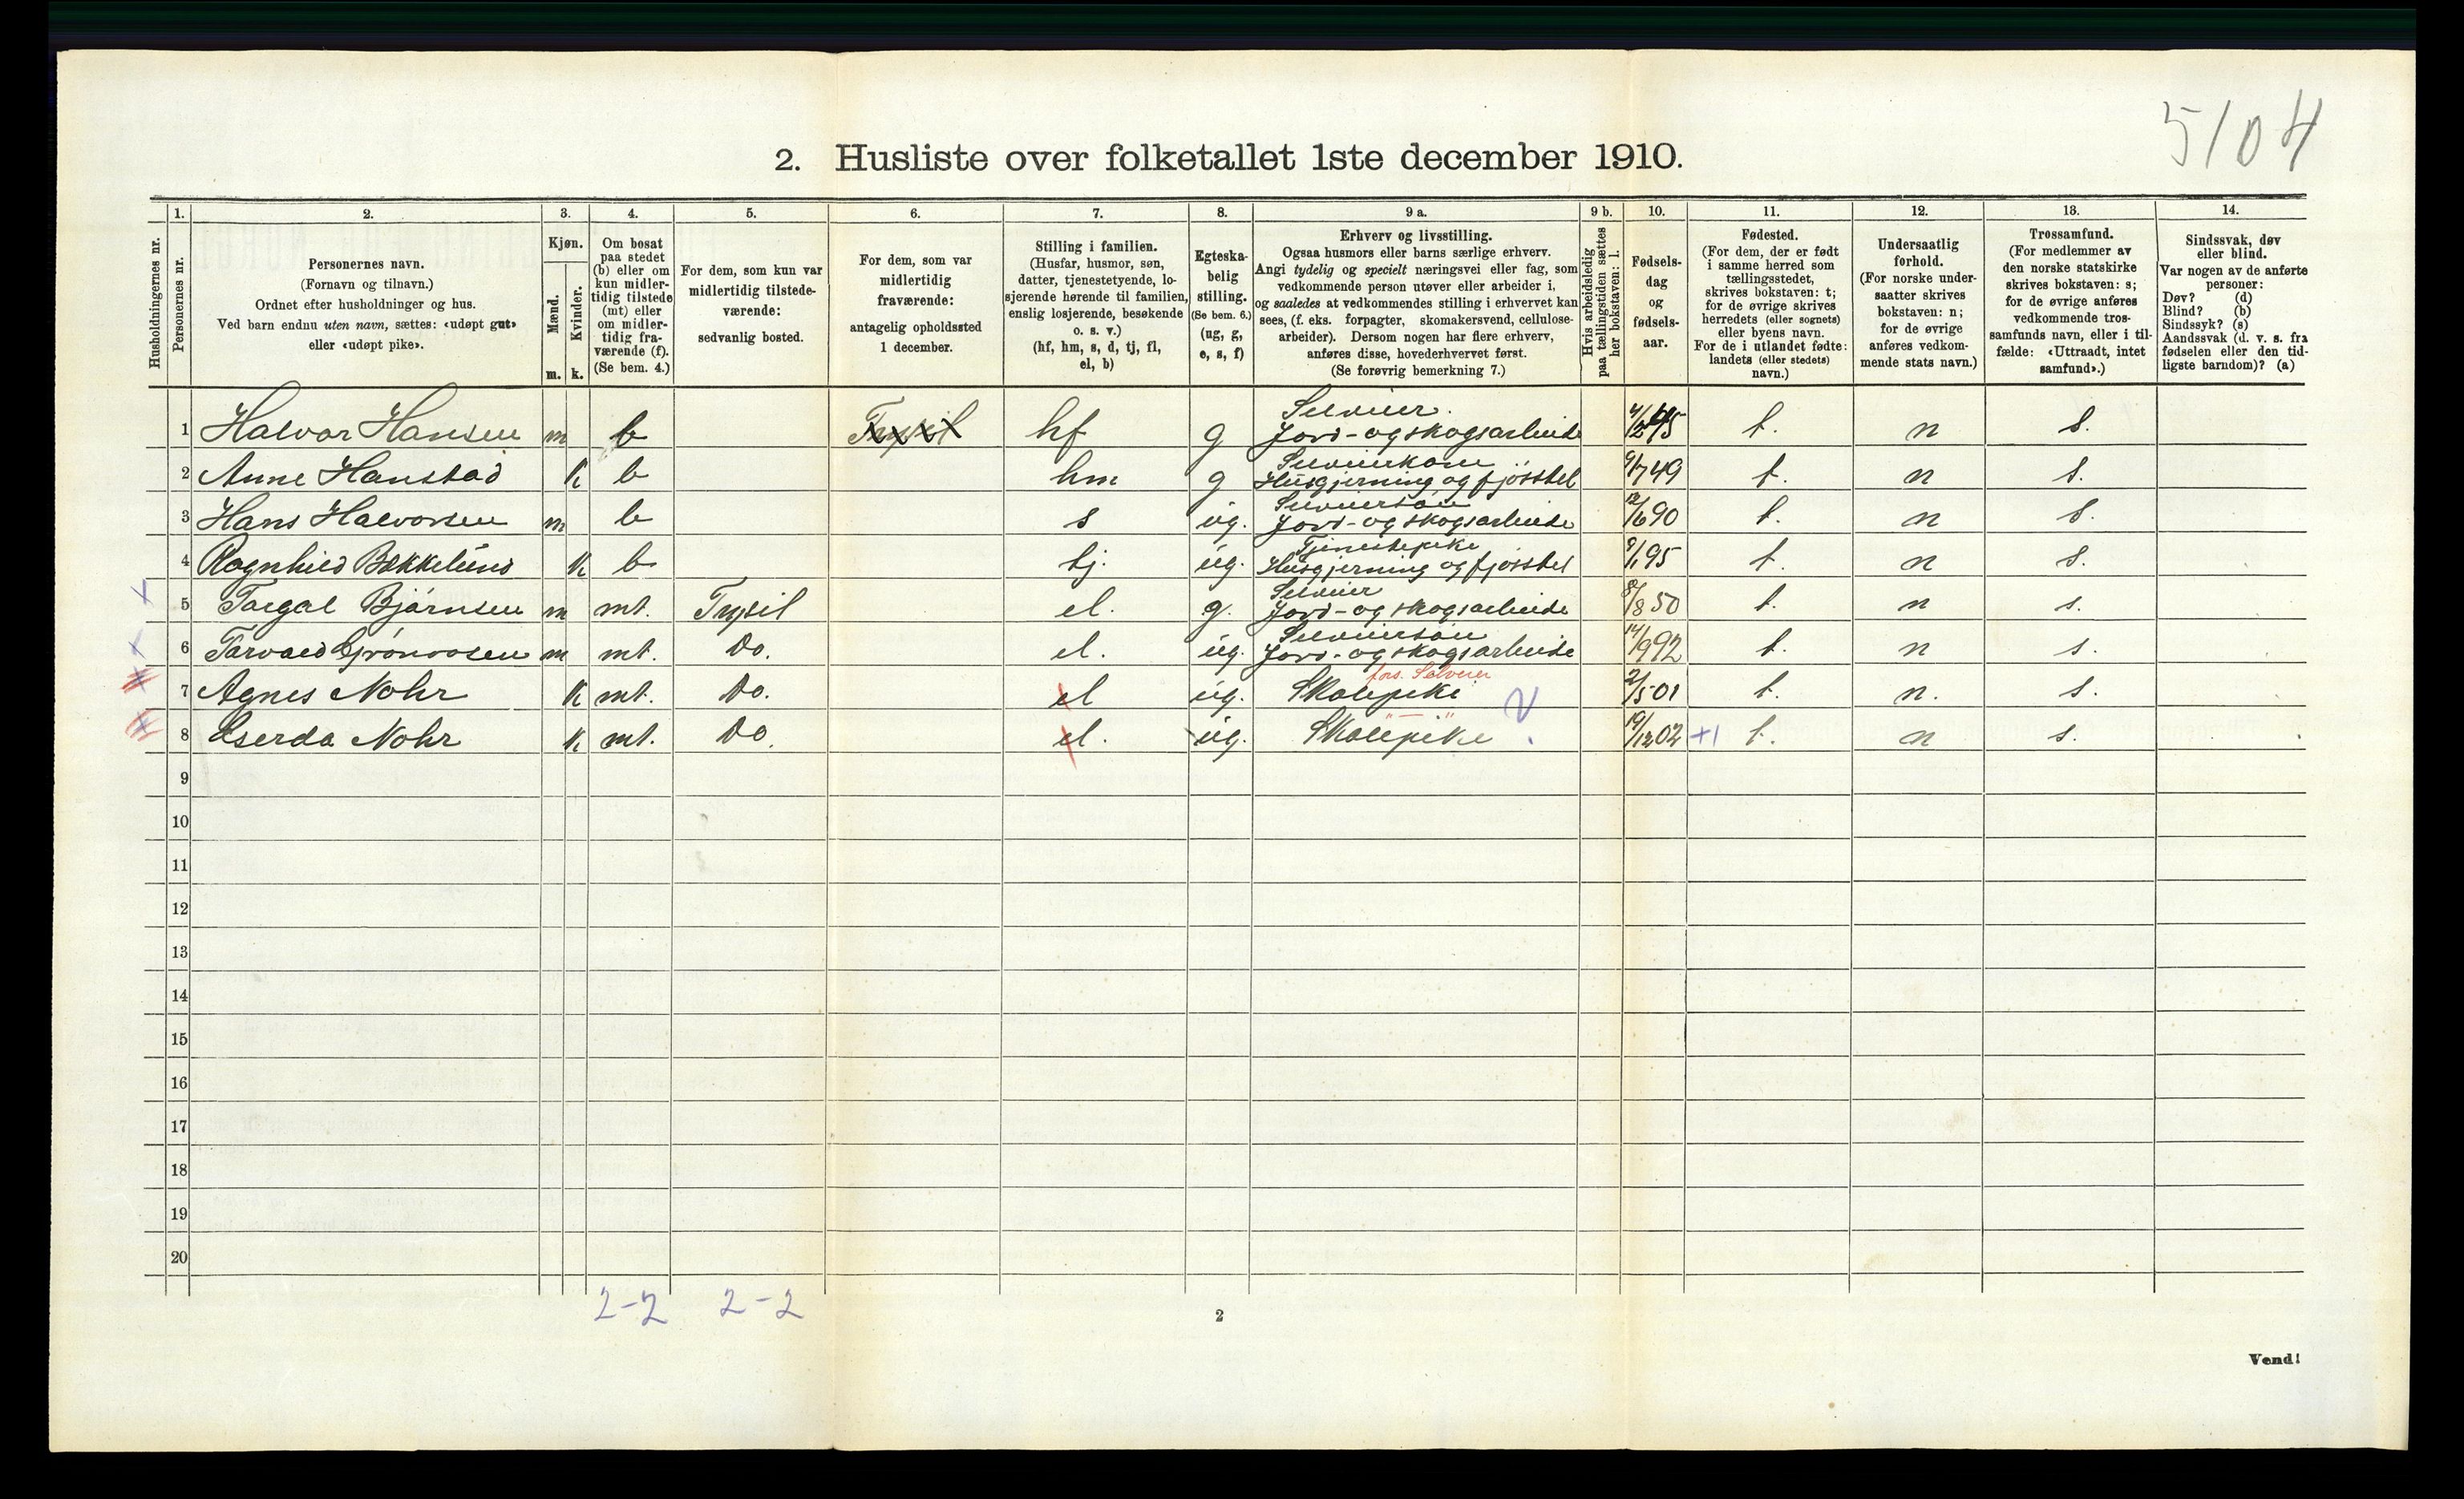 5104
2. Husliste over folketallet 1ste december 1910.
Husholdningernes nr.
1.
Personernes nr.
2.
Personernes navn.
(Fornavn og tilnavn.)
Ordnet efter husholdninger og hus.
Ved barn endnu uten navn, sættes: «udøpt gut»
eller «udøpt pike».
3.
Kjøn.
Mænd.
m.
Kvinder.
k.
4.
Om bosat
paa stedet
(b) eller om
kun midler-
tidig tilstede
(mt) eller
om midler-
tidig fra-
værende (f).
(Se bem. 4.)
5.
For dem, som kun var
midlertidig tilstede-
værende:
sedvanlig bosted.
6.
For dem, som var
midlertidig
fraværende:
antagelig opholdssted
1 december.
7.
Stilling i familien.
(Husfar, husmor, søn,
datter, tjenestetyende, lo-
sjerende hørende til familien,
enslig losjerende, besøkende
o. s. v.)
(hf, hm, s, d, tj, fl,
el, b)
8.
Egteska-
belig
stilling.
(Se bem. 6.)
(ug, g,
e, s, f)
9 a.
Erhverv og livsstilling.
Ogsaa husmors eller barns særlige erhverv.
Angi tydelig og specielt næringsvei eller fag, som
vedkommende person utøver eller arbeider i,
og saaledes at vedkommendes stilling i erhvervet kan
sees, (f. eks. forpagter, skomakersvend, cellulose-
arbeider). Dersom nogen har flere erhverv,
anføres disse, hovederhvervet først.
(Se forøvrig bemerkning 7.)
9 b.
Hvis arbeidsledig
paa tællingstiden sættes
her bokstaven: l.
10.
Fødsels-
dag
og
fødsels-
aar.
11.
Fødested.
(For dem, der er født
i samme herred som
tællingsstedet,
skrives bokstaven: t;
for de øvrige skrives
herredets (eller sognets)
eller byens navn.
For de i utlandet fødte:
landets (eller stedets)
navn.)
12.
Undersaatlig
forhold.
(For norske under-
saatter skrives
bokstaven: n;
for de øvrige
anføres vedkom-
mende stats navn.)
13.
Trossamfund.
(For medlemmer av
den norske statskirke
skrives bokstaven: s;
for de øvrige anføres
vedkommende tros-
samfunds navn, eller i til-
fælde: «Uttraadt, intet
samfund».)
14.
Sindssvak, døv
eller blind.
Var nogen av de anførte
personer:
Døv? (d)
Blind? (b)
Sindssyk? (s)
Aandssvak (d. v. s. fra
fødselen eller den tid-
ligste barndom)? (a)
Selveier.
1 Halvor Hansen m b Trysil hf g Jord- og skogsarbeide 4/2 45 t. n s.
Selveierkone
2 Anne Hanstad k b hm g Husgjerning og fjösstel 9/7 49 t. n s.
Selveiersön
3 Hans Halvorsen m b s ug. Jord- og skogsarbeide 12/6 90 t. n s.
Tjenestepike
4 Ragnhild Bækkelund k b tj. ug. Husgjerning og fjösstel 9/1 95 t. n s.
Selveier
5 Torgal Björnsen m mt. Trysil el. g. Jord- og skogsarbeide 8/8 50 t. n s.
Selveiersön
6 Torvald Grönoosen m mt. Do. el. ug. Jord- og skogsarbeide 14/9 92 t. n s.
fors. Selveier
7 Agnes Nohr k mt. Do. el ug. Skolepike 2/5 01 t. n. s.
" — "
8 Gserda Nohr k mt. Do. el. ug. Skolepike 19/12 02 +1 t. n s.
9
10
11
12
13
14
15
16
17
18
19
20
2-2 2-2
2
Vend!